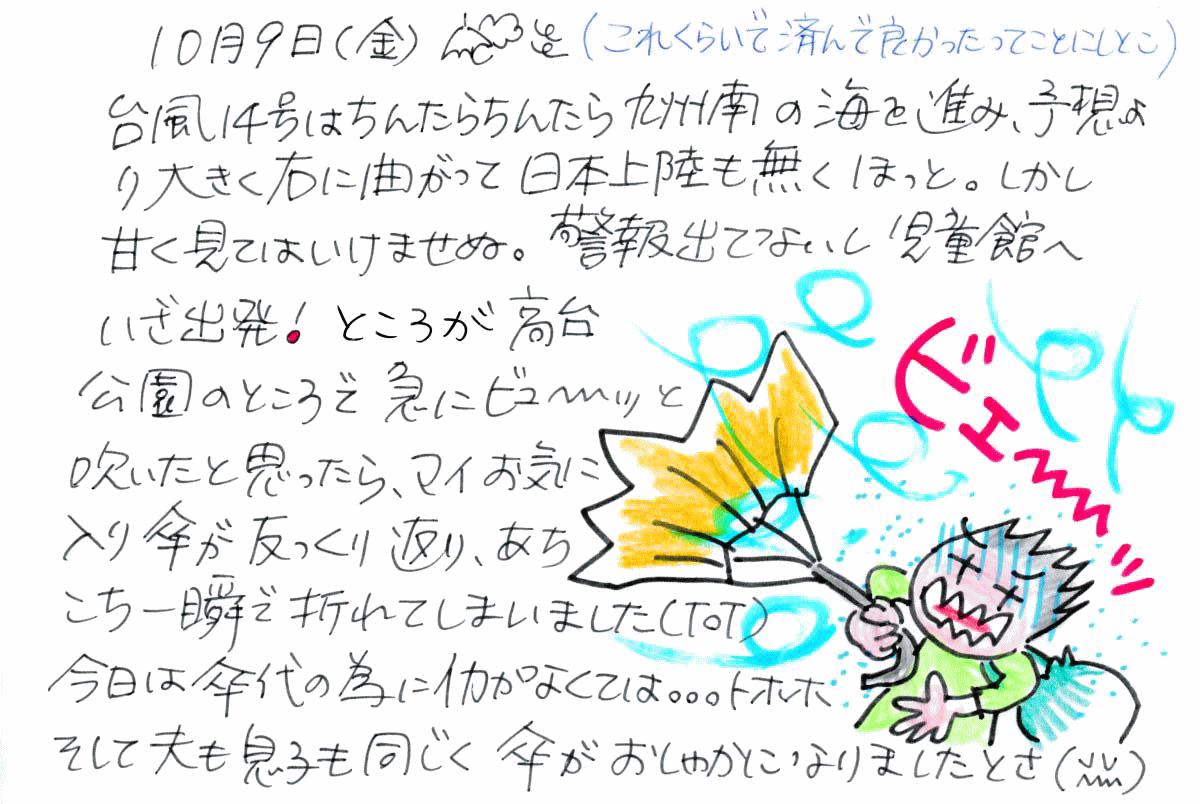 10月9日(金) (これくらいで済んで良かったってことにしとこ)
台風14号はちんたらちんたら九州南の海を進み、予想よ
り大きく右に曲がって日本上陸も無くほっと。しかし
甘く見てはいけませぬ。警報出てないし児童館へ
いざ出発!ところが高台
公園のところで急にビュ〜〜ッと
吹いたと思ったら、マイお気に
入り傘が反っくり返り、あち
こち一瞬で折れてしまいました(ToT)
今日は傘代の為に働かなくては。。。トホホ
そして夫も息子も同じく傘がおしゃかになりましたとさ
ビュ〜〜ッ